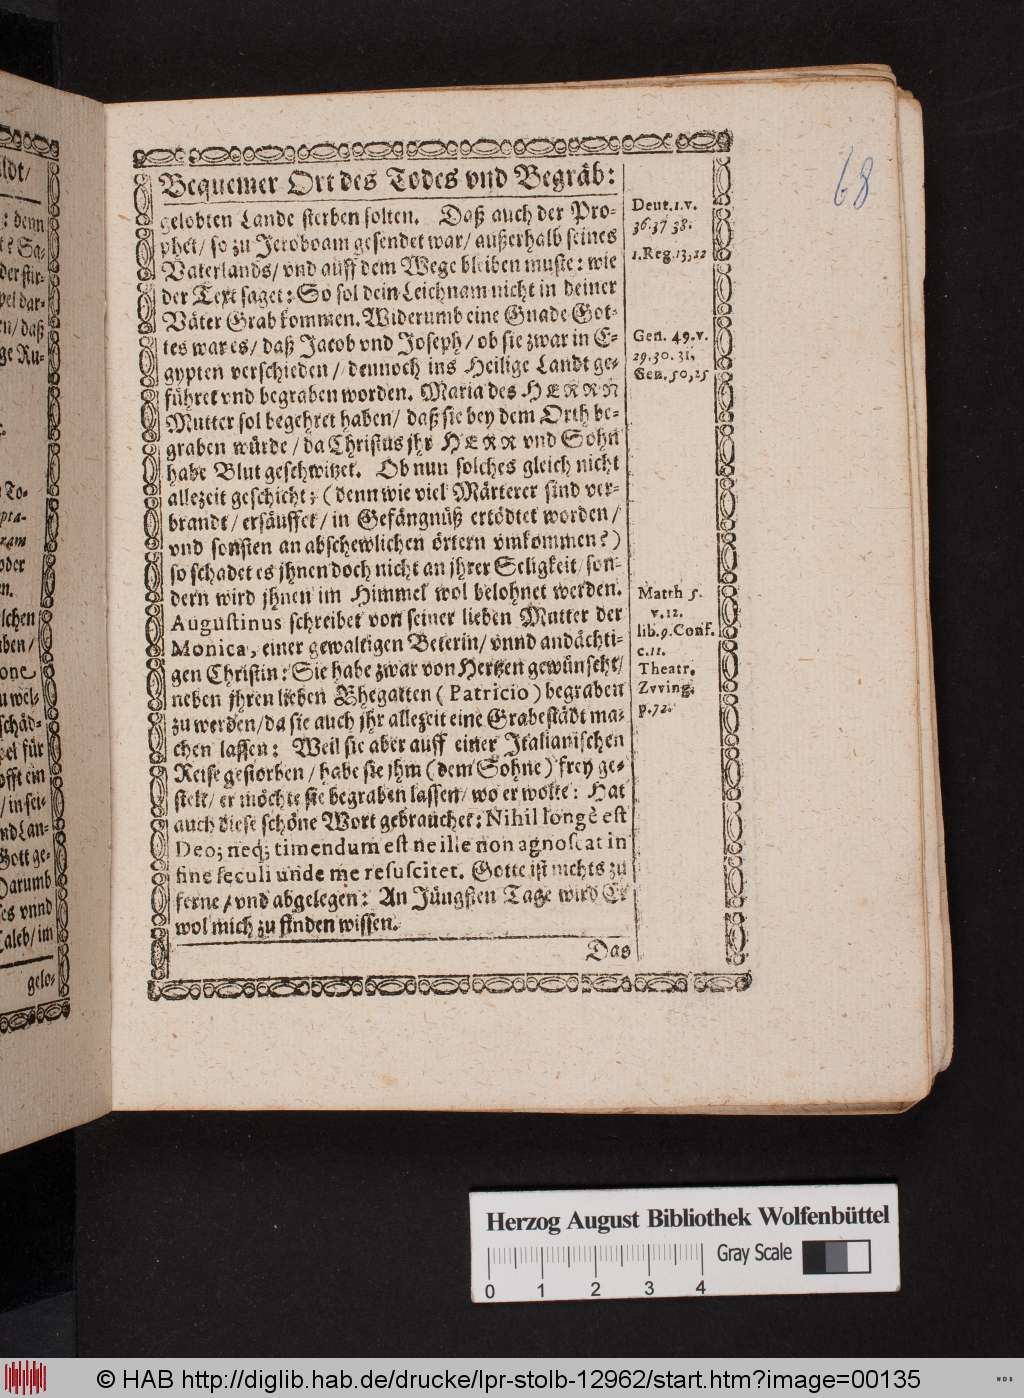 Bequemer Ort des Todes vnd Begräb:
gelobten Lande sterben solten. Daß auch der Pro-
phet/ so zu Jeroboam gesendet war/ außerhalb seines
Vaterlands/ vnd auff dem Wege bleiben muste: wie
der Text saget: So sol dein Leichnam nicht in deiner
Väter Grab kommen. Widerumb eine Gnade Got-
tes war es/ daß Jacob vnd Joseph/ ob sie zwar in E-
gypten verschieden/ dennoch ins Heilige Landt ge-
führet vnd begraben worden. Maria des HERRN
Mutter sol begehret haben/ daß sie bey dem Orth be-
graben würde/ da Christus jhr HERR vnd Sohn
habe Blut geschwitzet. Ob nun solches gleich nicht
allezeit geschicht: (denn wie viel Märterer sind ver-
brandt/ ersäuffet/ in Gefängnüß ertödtet worden/
vnd sonsten an abschewlichen örtern vmkommen?)
so schadet es jhnen doch nicht an jhrer Seligkeit/ son-
dern wird jhnen im Himmel wol belohnet werden.
Augustinus schreibet von seiner lieben Mutter der
Monica, einer gewaltigen Beterin/ vnnd andächti-
gen Christin: Sie habe zwar von Hertzen gewünscht/
neben jhren lieben Ehegatten (Patricio) begraben
zu werden/ da sie auch jhr allezeit eine Grabestädt ma-
chen lassen: Weil sie aber auff einer Italianischen
Reise gestorben/ habe sie jhm (dem Sohne) frey ge-
stelt/ er möchte sie begraben lassen/ wo er wolte: Hat
auch diese schöne Wort gebrauchet: Nihil longè est
Deo; neq; timendum est ne ille non agnoscat in
fine seculi unde me resuscitet. Gotte ist nichts zu
ferne/ vnd abgelegen: An Jüngsten Tage wird Er
wol mich zu finden wissen.
Das
Deut. 1. v.
36. 37 38.
1. Reg. 13, 22
Gen. 49. v.
29. 30. 31.
Gen. 50, 25
Matth 5.
v. 12.
lib. 9. Conf.
c. 11.
Theatr.
Zvving.
p. 72.
68
ldt/
: denn
t? Sa-
der stir-
pel dar-
en/ daß
ge Ru-
To-
pta-
ram
oder
en.
lchen
ben/
one
u wel-
schäd-
pel für
offt ein
/ in sei-
nd Lan-
Gott ge-
Darumb
es vnnd
Caleb/ im
gelo-
Herzog August Bibliothek Wolfenbüttel
Gray Scale
0 1 2 3 4
© HAB http://diglib.hab.de/drucke/lpr-stolb-12962/start.htm?image=00135
WDB